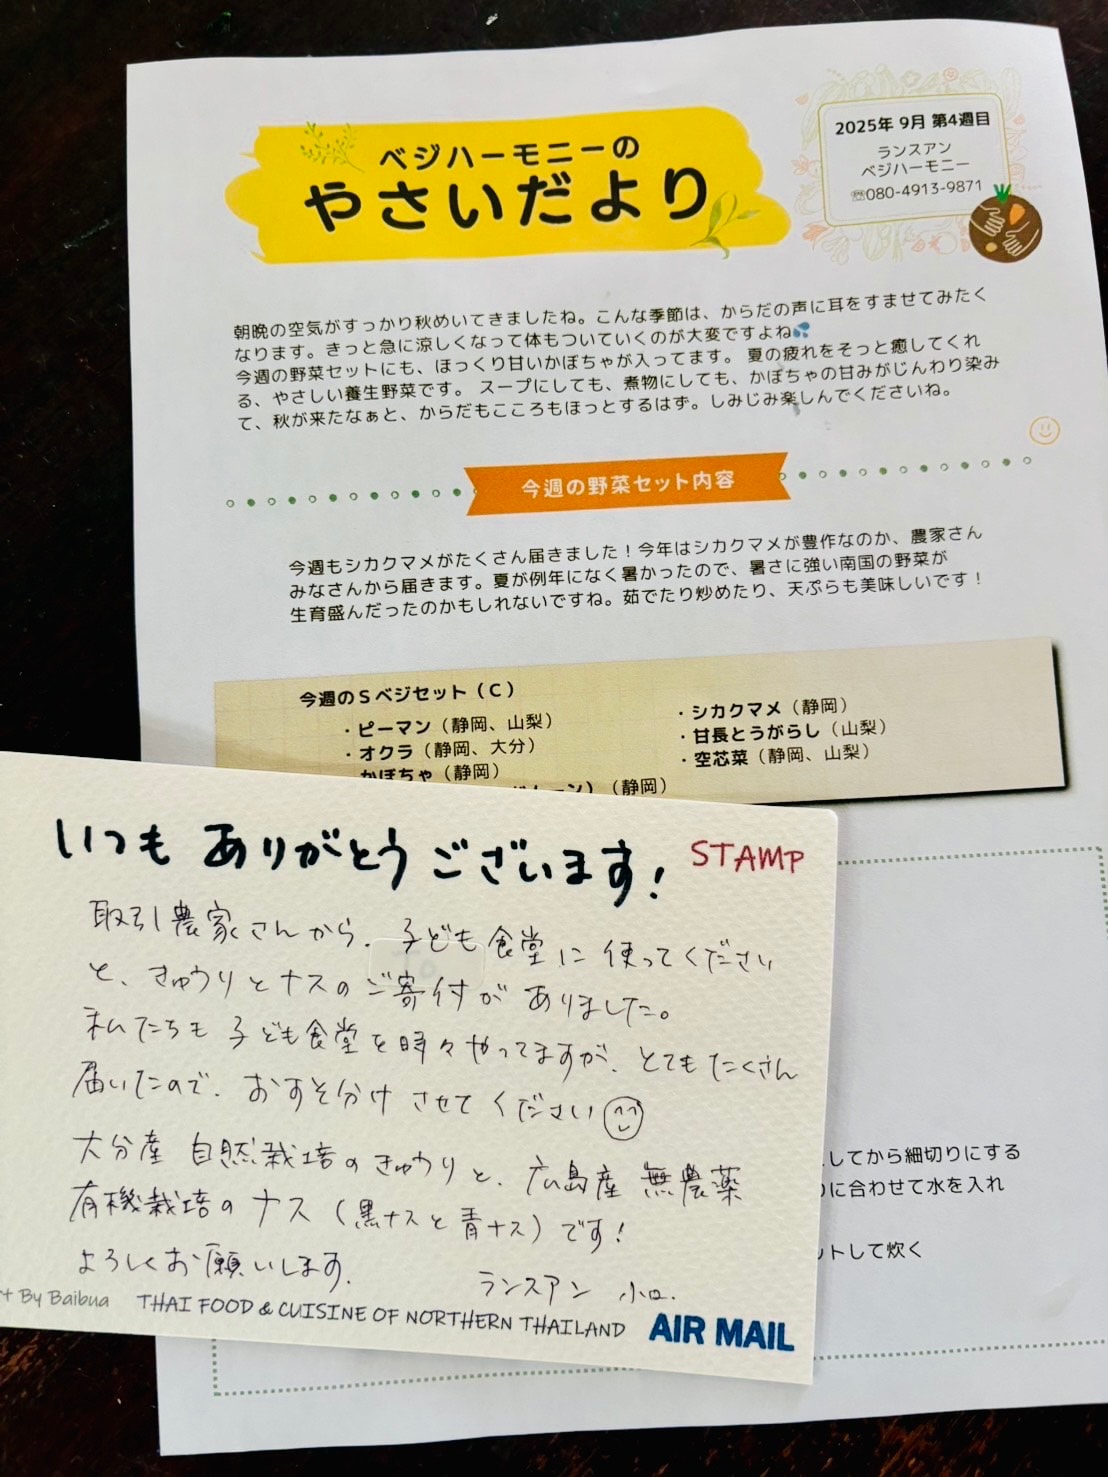 2025年 9月 第4週目
ランスアン
ベジハーモニー
☏080-4913-9871
ベジハーモニーの
やさいだより
朝晩の空気がすっかり秋めいてきましたね。こんな季節は、からだの声に耳をすませてみたく
なります。きっと急に涼しくなって体もついていくのが大変ですよね💦
今週の野菜セットにも、ほっくり甘いかぼちゃが入ってます。 夏の疲れをそっと癒してくれ
る、やさしい養生野菜です。 スープにしても、煮物にしても、かぼちゃの甘みがじんわり染み
て、秋が来たなぁと、からだもこころもほっとするはず。しみじみ楽しんでくださいね。
今週の野菜セット内容
今週もシカクマメがたくさん届きました！今年はシカクマメが豊作なのか、農家さん
みなさんから届きます。夏が例年になく暑かったので、暑さに強い南国の野菜が
生育盛んだったのかもしれないですね。茹でたり炒めたり、天ぷらも美味しいです！
今週のSベジセット（C）
・ピーマン（静岡、山梨）
・オクラ（静岡、大分）
かぼちゃ（静岡）
（静岡）
・シカクマメ（静岡）
・甘長とうがらし（山梨）
・空芯菜（静岡、山梨）
いつも ありがとうございます!
STAMP
取引農家さんから、子ども食堂に使ってください
と、きゅうりとナスのご寄付がありました。
私たちも子ども食堂を時々やってますが、とてもたくさん
届いたので、おすそ分けさせてください
大分産 自然栽培のきゅうりと、広島産 無農薬
有機栽培のナス（黒ナスと青ナス）です!
よろしくお願いします。
ランスアン 小口.
By Baibua
THAI FOOD & CUISINE OF NORTHERN THAILAND
AIR MAIL
してから細切りにする
に合わせて水を入れ
ットして炊く